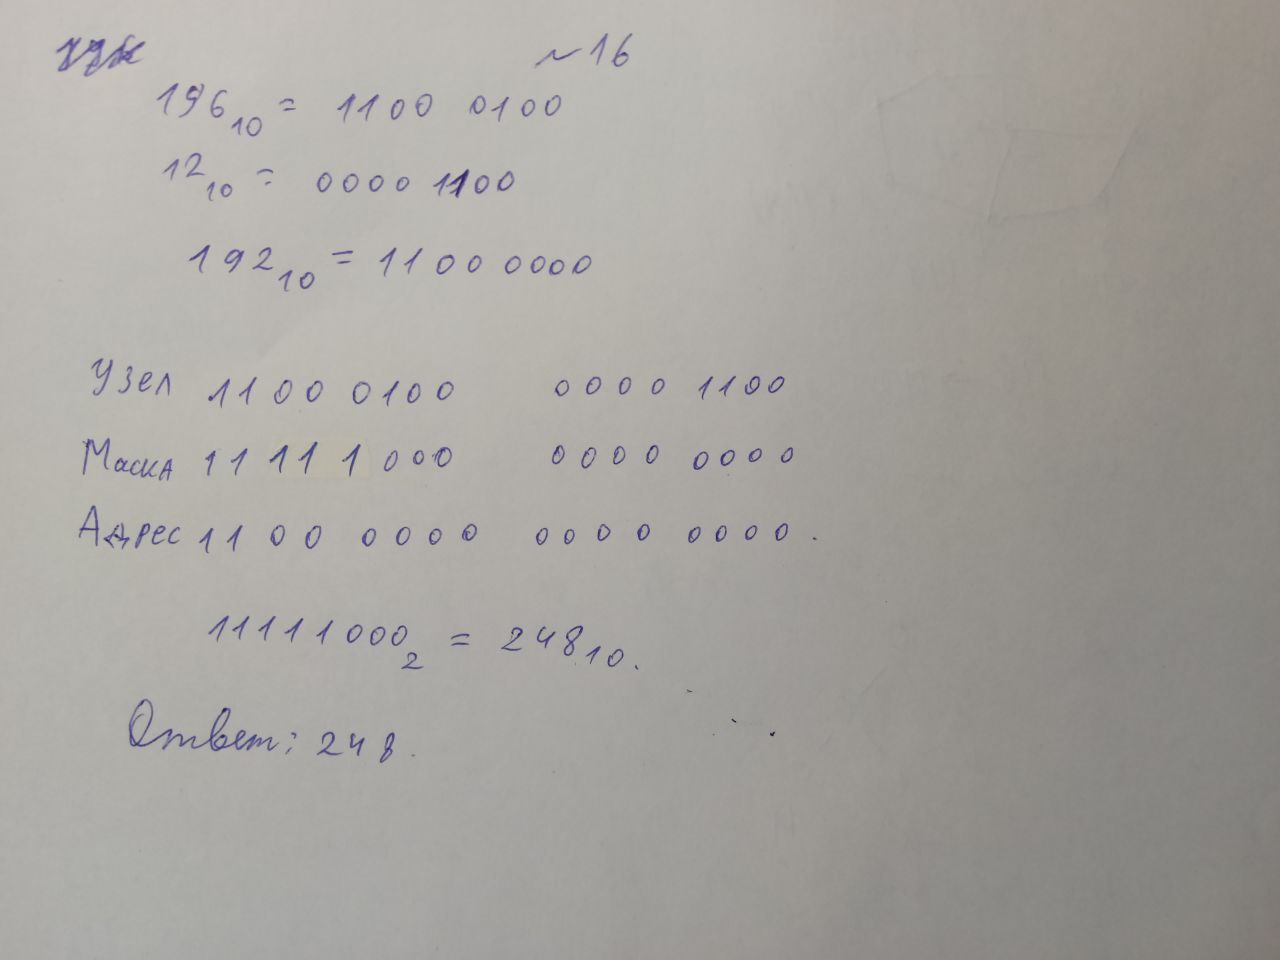 ~16
196₁₀ = 1100 0100
12₁₀ = 0000 1100
192₁₀ = 1100 0000
Узел 1100 0100 0000 1100
Маска 11 11 1000 0000 0000
Адрес 11 00 0000 0000 0000.
11111000₂ = 248₁₀.
Ответ: 248.